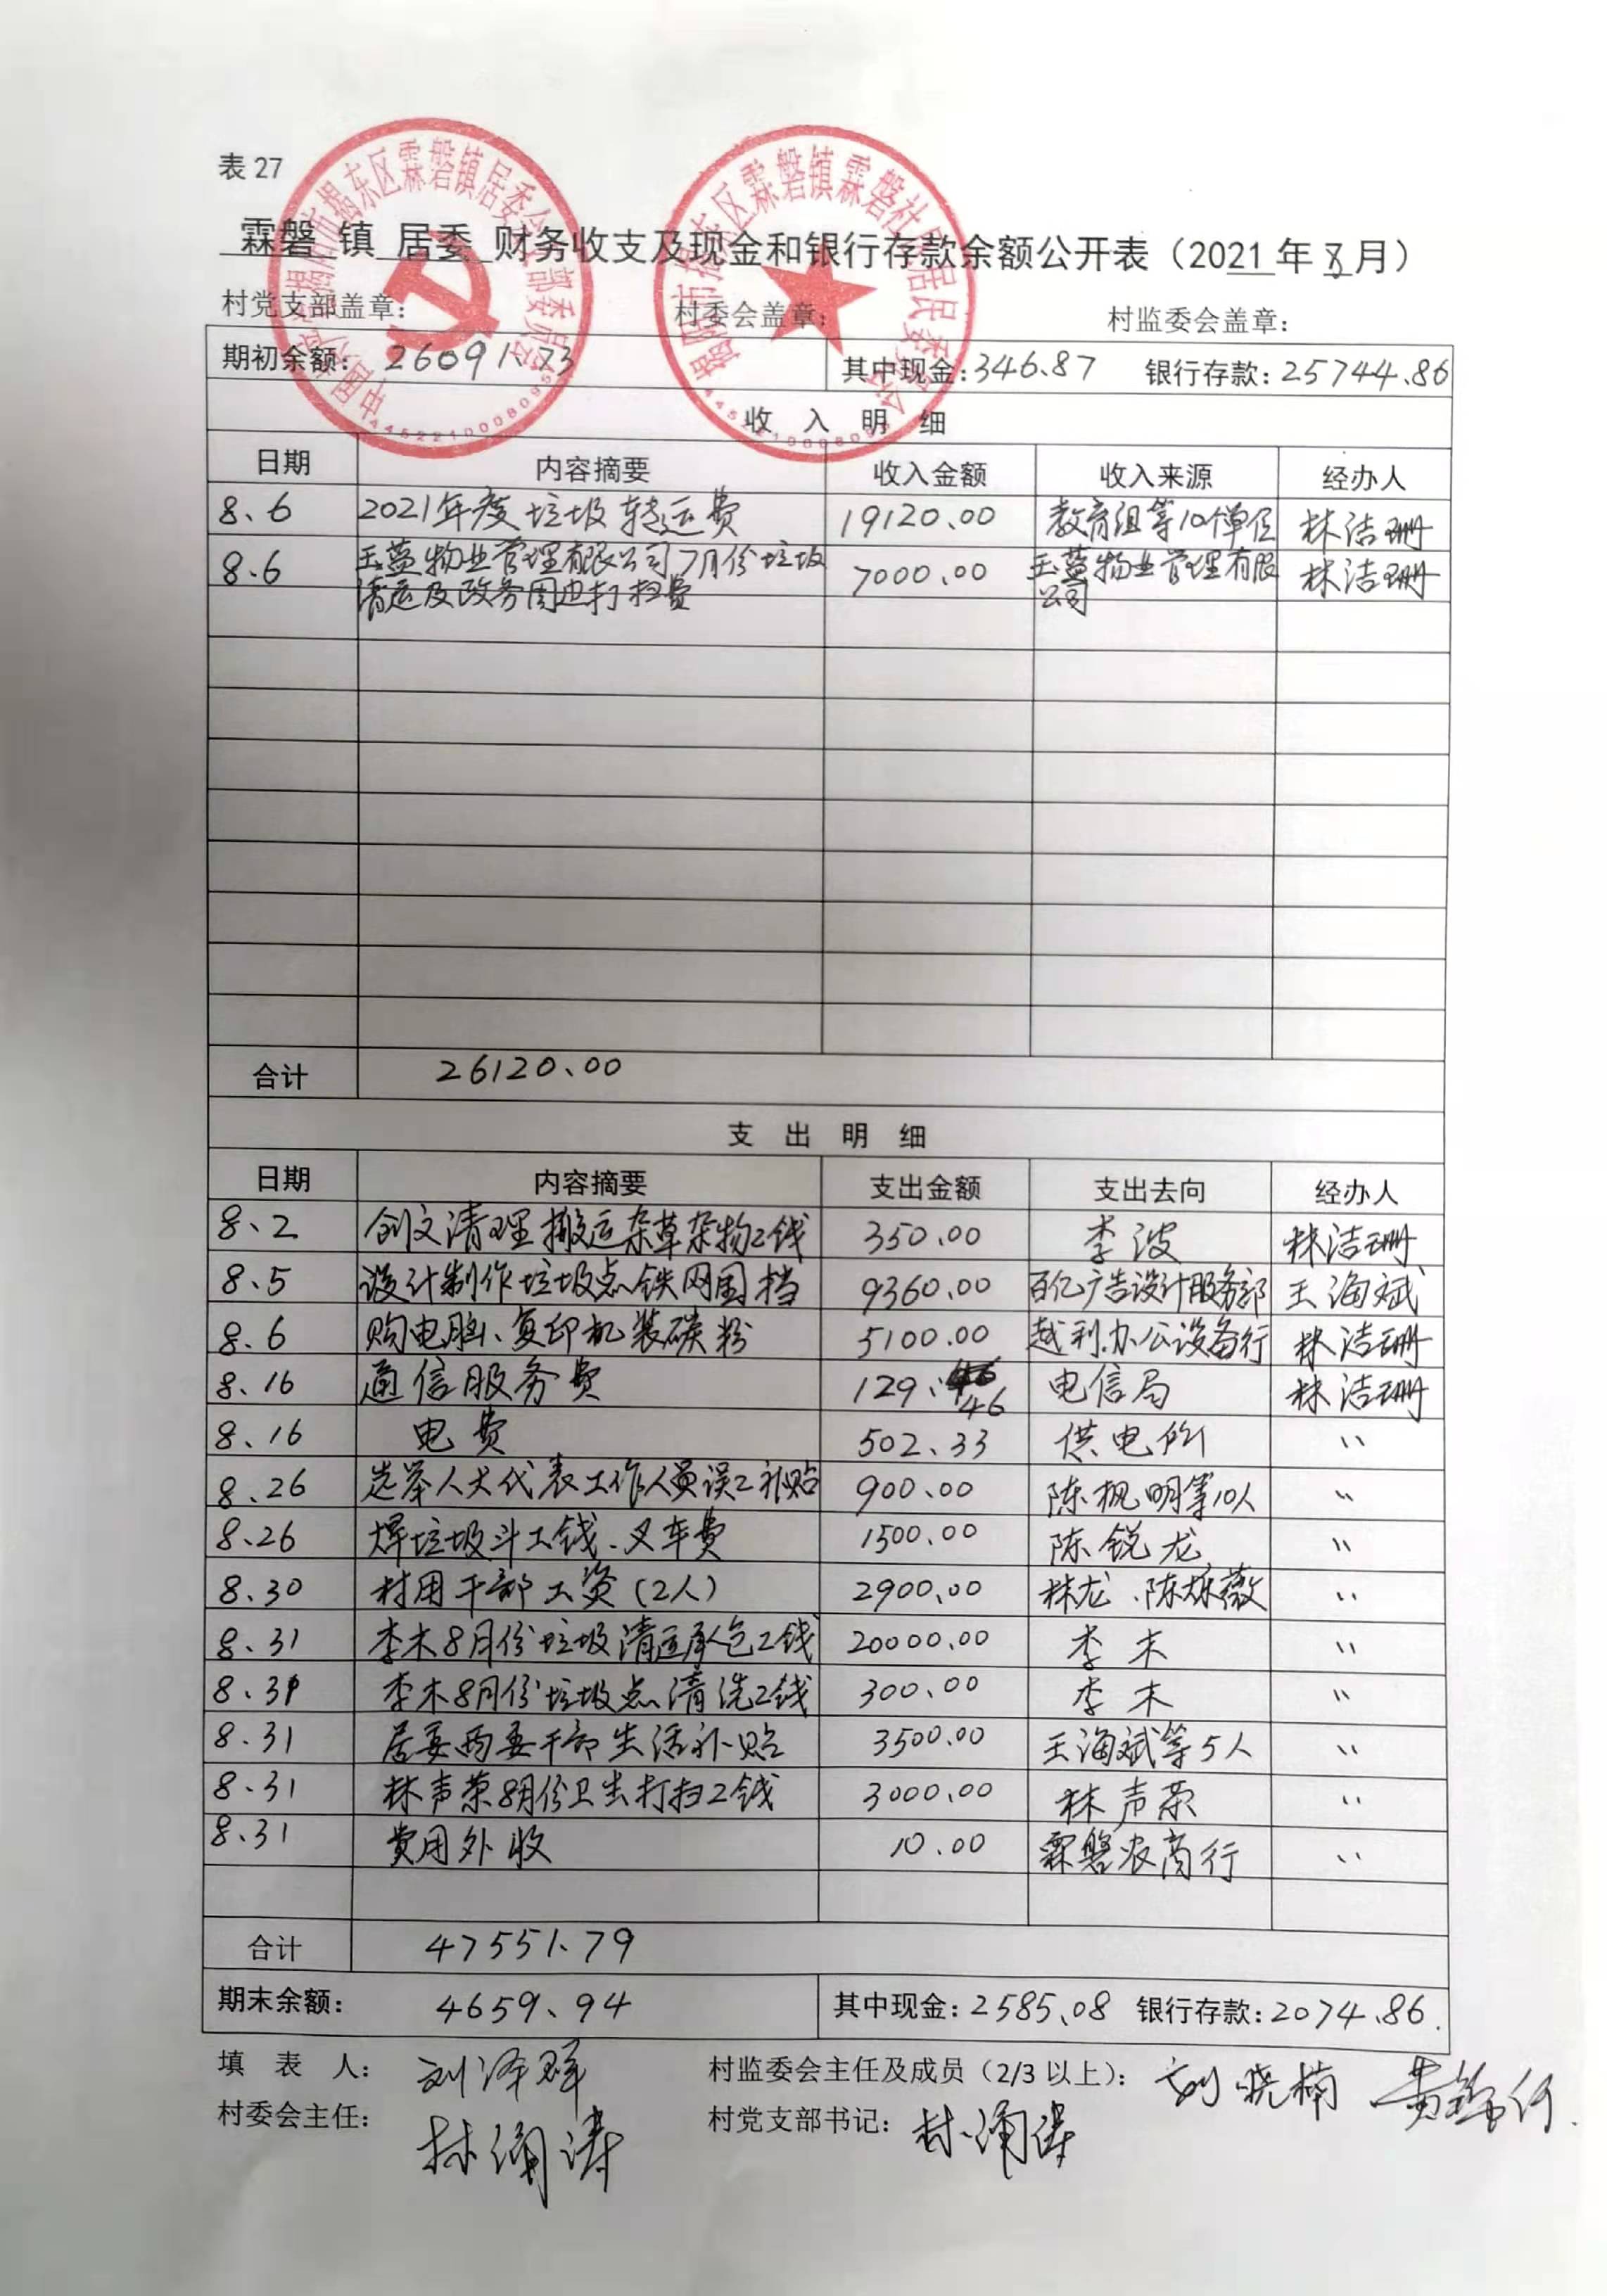 表 27
霖磐 镇 居委 财务收支及现金和银行存款余额公开表（2021 年 8 月）
村党支部盖章： 村委会盖章： 村监委会盖章：
期初余额： 26091.73 其中现金：346.87 银行存款：25744.86
收 入 明 细
日期 内容摘要 收入金额 收入来源 经办人
8、6 2021年度垃圾转运费 19120.00 教育组等10个单位 林洁珊
8.6 玉蓝物业管理有限公司7月份垃圾 7000.00 玉蓝物业管理有限 林洁珊
清运及政务周边打扫费 公司
合计 26120、00
支 出 明 细
日期 内容摘要 支出金额 支出去向 经办人
8、2 创文清理搬运杂草杂物工钱 350.00 李波 林洁珊
8.5 设计制作垃圾点铁网围挡 9360.00 百亿广告设计服务部 王海斌
8、6 购电脑、复印机装碳粉 5100.00 越利办公设备行 林洁珊
8、16 通信服务费 129、46 电信局 林洁珊
8、16 电费 502.33 供电所 〃
8.26 选举人大代表工作人员误工补贴 900.00 陈枫明等10人 〃
8.26 焊垃圾斗工钱、叉车费 1500.00 陈锐龙 〃
8.30 村用干部工资（2人） 2900.00 林龙、陈烁薇 〃
8、31 李木8月份垃圾清运承包工钱 20000.00 李木 〃
8.31 李木8月份垃圾点清洗工钱 300.00 李木 〃
8.31 居委两委干部生活补贴 3500.00 王海斌等5人 〃
8、31 林声荣8月份卫生打扫工钱 3000.00 林声荣 〃
8.31 费用外收 10.00 霖磐农商行 〃
合计 47551.79
期末余额： 4659、94 其中现金：2585.08 银行存款：2074.86.
填 表 人： 刘泽群 村监委会主任及成员（2/3 以上）： 刘晓楠
村委会主任： 林涌涛 村党支部书记： 林涌涛
中国共产党揭阳市揭东区霖磐镇居委会支部委员会
揭阳市揭东区霖磐镇霖磐社区居民委员会